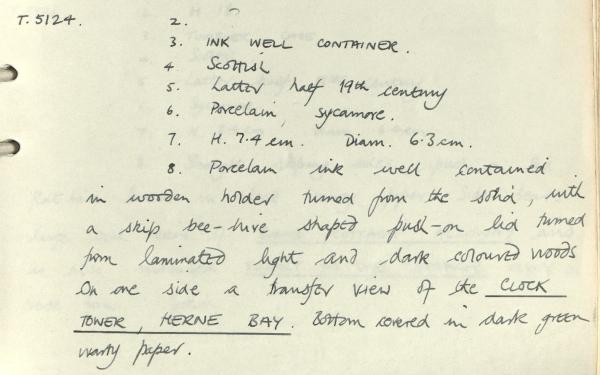 T.5124. 2.
3. INK WELL CONTAINER.
4 Scottish
5. Latter half 19th century
6. Porcelain, sycamore.
7. H. 7.4 cm. Diam. 6.3 cm.
8. Porcelain ink well contained
in wooden holder turned from the solid, with
a skip bee-hive shaped push-on lid turned
from laminated light and dark coloured woods
On one side a transfer view of the CLOCK
TOWER, HERNE BAY. Bottom covered in dark green
warty paper.